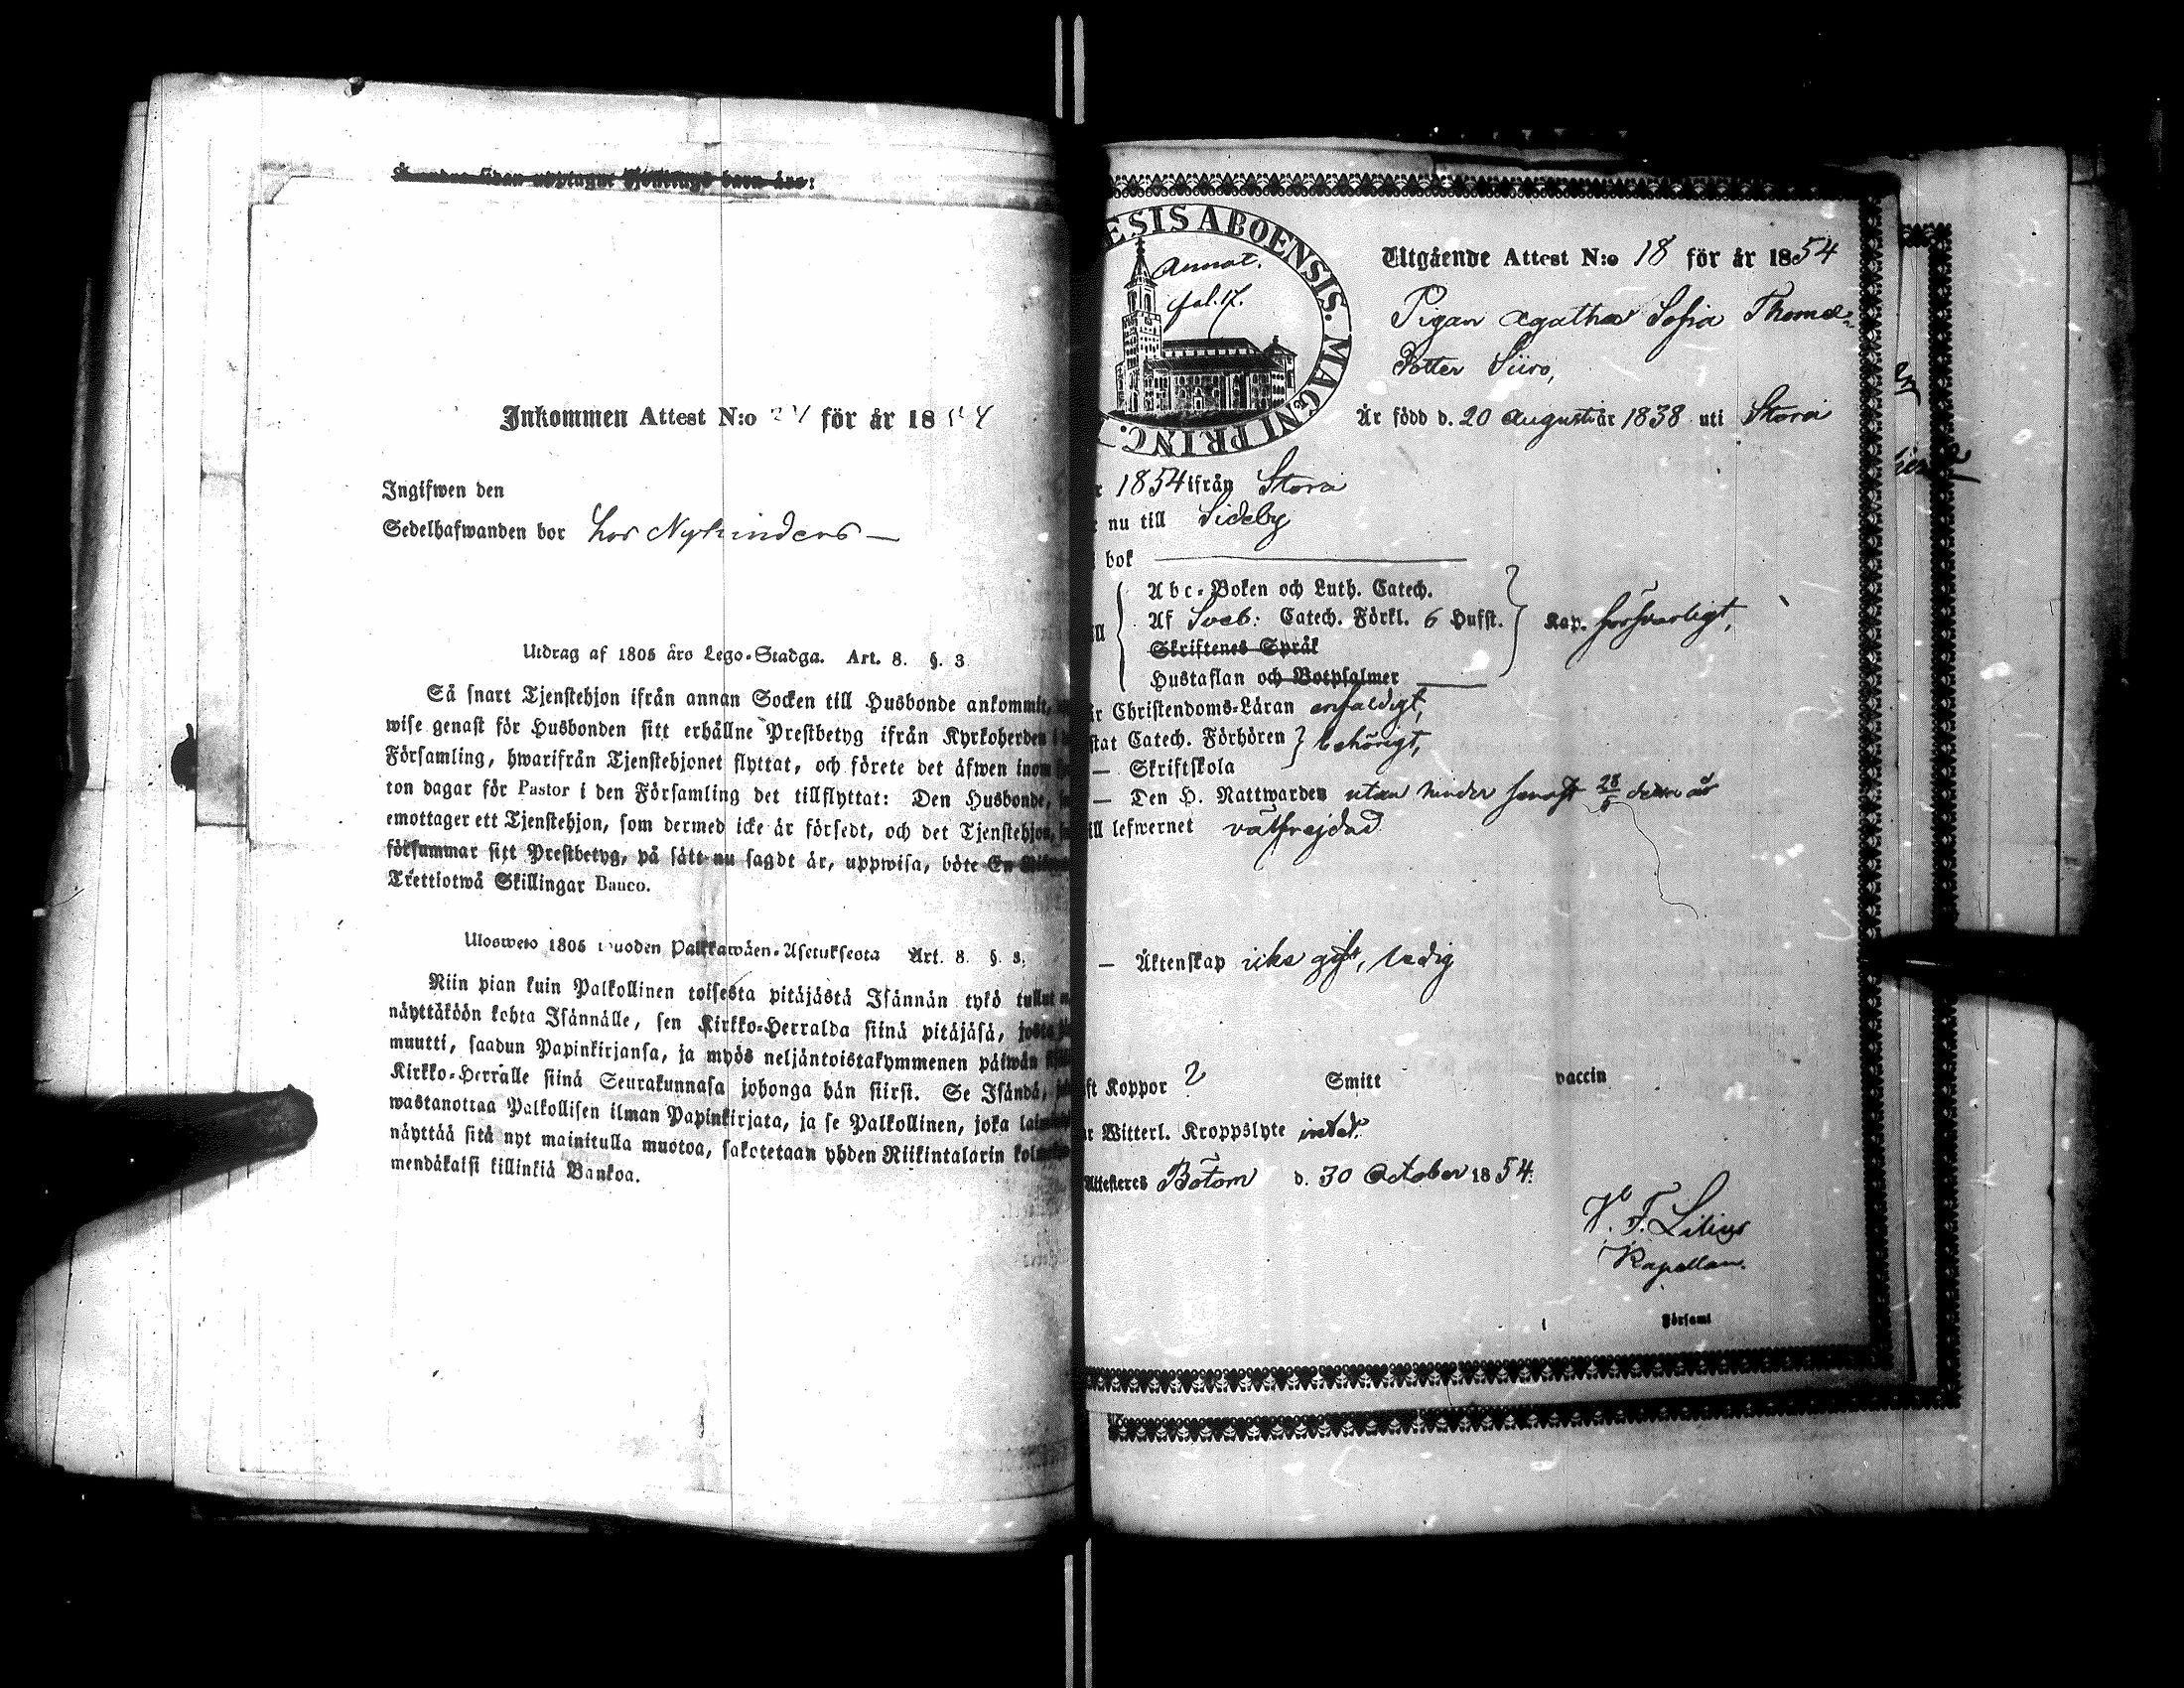 Inkommen Attest N:o för år 18
Ingifwen den
Sedelhafwanden bor hos
Utdrag af 1805 års Lego-Stadga. Art. 8. §. 3
Så snart Tjenstehjon ifrån annan Socken till Husbonde ankommit,
wise genast för Husbonden sitt erhållne Prestbetyg ifrån Kyrkoherden i
Församling, hwarifrån Tjenstehjonet flyttat, och förete det äfwen inom
ton dagar för Pastor i den Församling det tillflyttat: Den Husbonde,
emottager ett Tjenstehjon, som dermed icke är försedt, och det Tjenstehjon,
försummar sitt Prestbetyg, på sätt nu sagdt är, uppwisa, böte En
Trettiotwå Skillingar Banco.
Ulosweto 1805 wuoden Palkkawäen-Asetuksesta Art. 8. §. 3.
Niin pian kuin Palkollinen toisesta pitäjästä Isännän tykö tullut
näyttäköön kohta Isännälle, sen Kirkko-Herralda siinä pitäjäsä, josta
muutti, saadun Papinkirjansa, ja myös neljäntoistakymmenen päiwän
Kirkko-Herralle siinä Seurakunnasa johonga hän siirsi. Se Isändä,
wastanottaa Palkollisen ilman Papinkirjata, ja se Palkollinen, joka
näyttää sitä nyt mainitulla muotoa, sakotetaan yhden Riikintalarin
mendäkaksi killinkiä Bankoa.
ESIS ABOENSIS. MAGNI PRINC.
Annot.
fol. 17.
Utgående Attest N:o 18 för år 1854
Pigan Agatha Sofia Thomæ-
dotter Siiro,
Är född d. 20 Augusti år 1838 uti Storå
1854 ifrån Storå
nu till Sideby
bok
Abc-Boken och Luth. Catech.
Af Sveb: Catech. Förkl. 6 Hufst. Kap. försvarligt,
Skriftenes Språk
Hustaflan och Botpsalmer
Christendoms-Läran enfaldigt,
Catech. Förhören behörigt,
— Skriftskola
— Den H. Nattwarden utan hinder senast 28/5 detta år
till lefwernet välfrejdad
— Äktenskap icke gift, ledig
Koppor Smitt vaccin
Witterl. Kroppslyte intet.
Attesteres Bötom d. 30 October 1854.
V. F. Lilius
Kapellan.
Församl